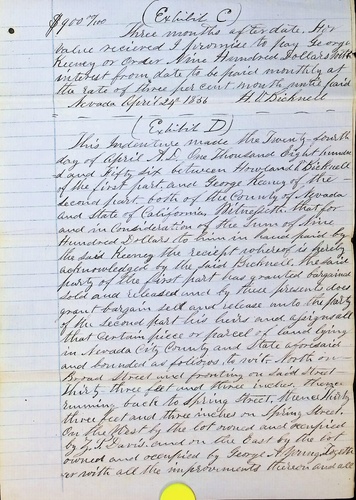 $900 7/100 (Exhibit C)
Three months after date. For
value recieved I promise to pay George
Keeney or Order Nine Hundred Dollars With
interest from date to be paid monthly at
the rate of three per cent month until paid
Nevada April 24th 1856 H. L. Bicknell
(Exhibit D)
This Indenture made the Twenty fourth
day of April A.D. One Thousand Eight hundre
d and Fifty six between Howland Bicknell
of the first part, and George Keeney of the
second part both of the County of Nevada
and State of California, Witnesseth, that for
and in Consideration of the Sum of Nine
Hundred Dollars to him in hand paid by
the said Keeney the receipt whereof is hereby
acknowledged by the said Bicknell, the said
party of the first part has granted bargained
sold and released and by these presents does
grant bargain sell and release unto the party
of the second part his heirs and assigns all
that Certain piece or parcel of land lying
in Nevada City County and State aforesaid
and bounded as follows, to wit. North on
Broad Street and fronting on said Street
thirty three feet and three inches. Thence
running back to Spring Street, thence thirty
three feet and three inches on Spring Street.
On the West by the lot owned and occupied
by Davis. and on the East by the lot
owned and occupied by George A. Young. Togeth
er with all the improvements thereon and all